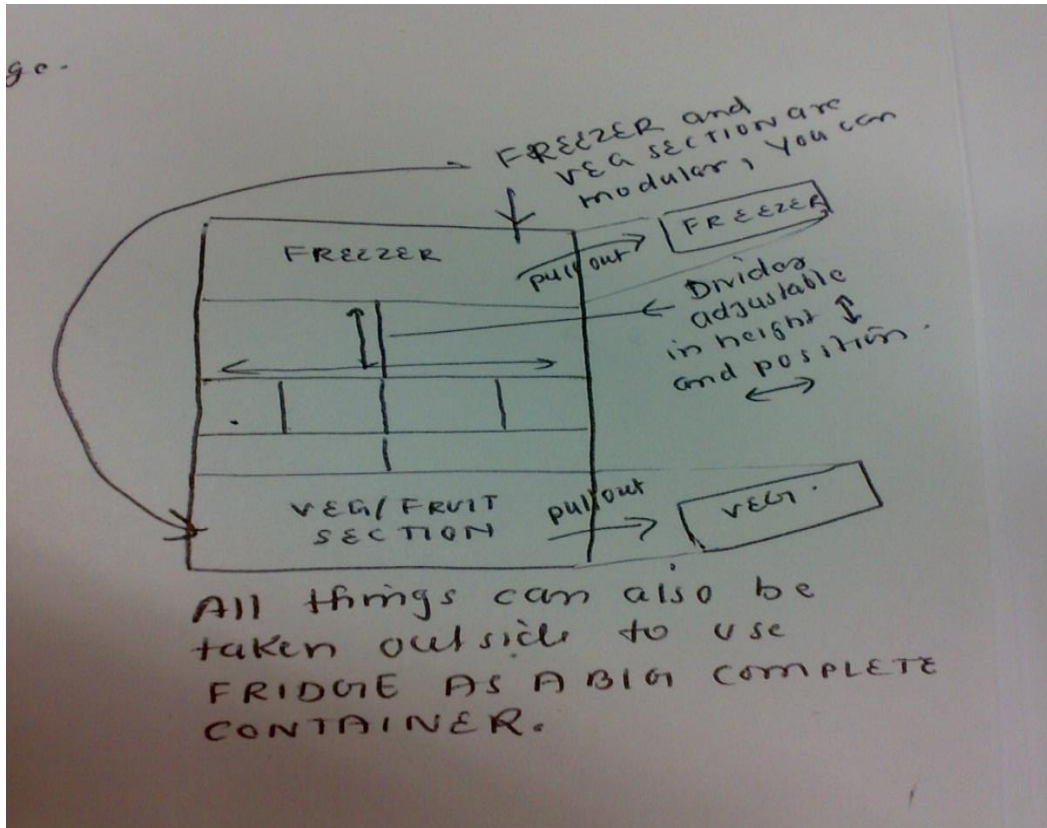 ge.
FREEZER and
VEG SECTION are
modular, You can
FREEZER
pull out
FREEZER
Divider
adjustable
in height
and position.
VEG/FRUIT
SECTION
pull out
VEG.
All things can also be
taken outside to use
FRIDGE AS A BIG COMPLETE
CONTAINER.